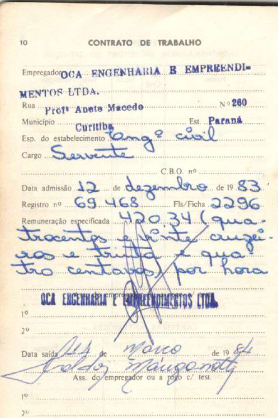 10 CONTRATO DE TRABALHO
Empregador OCA ENGENHARIA E EMPREENDI-
MENTOS LTDA.
Rua Profª Anete Macedo Nº 260
Município Curitiba Est. Paraná
Esp. do estabelecimento Engª civil
Cargo Servente
C.B.O. nº
Data admissão 12 de dezembro de 19 83
Registro nº 69.468 Fls/Ficha 2296
Remuneração especificada 420,34 (qua-
trocentos e vinte cruzei-
ros e trinta e qua
tro centavos) por hora
OCA ENGENHARIA E EMPREENDIMENTOS LTDA.
1º
2º
Data saída de Março de 1984
Ass. do empregador ou a rogo c/ test.
1º
2º